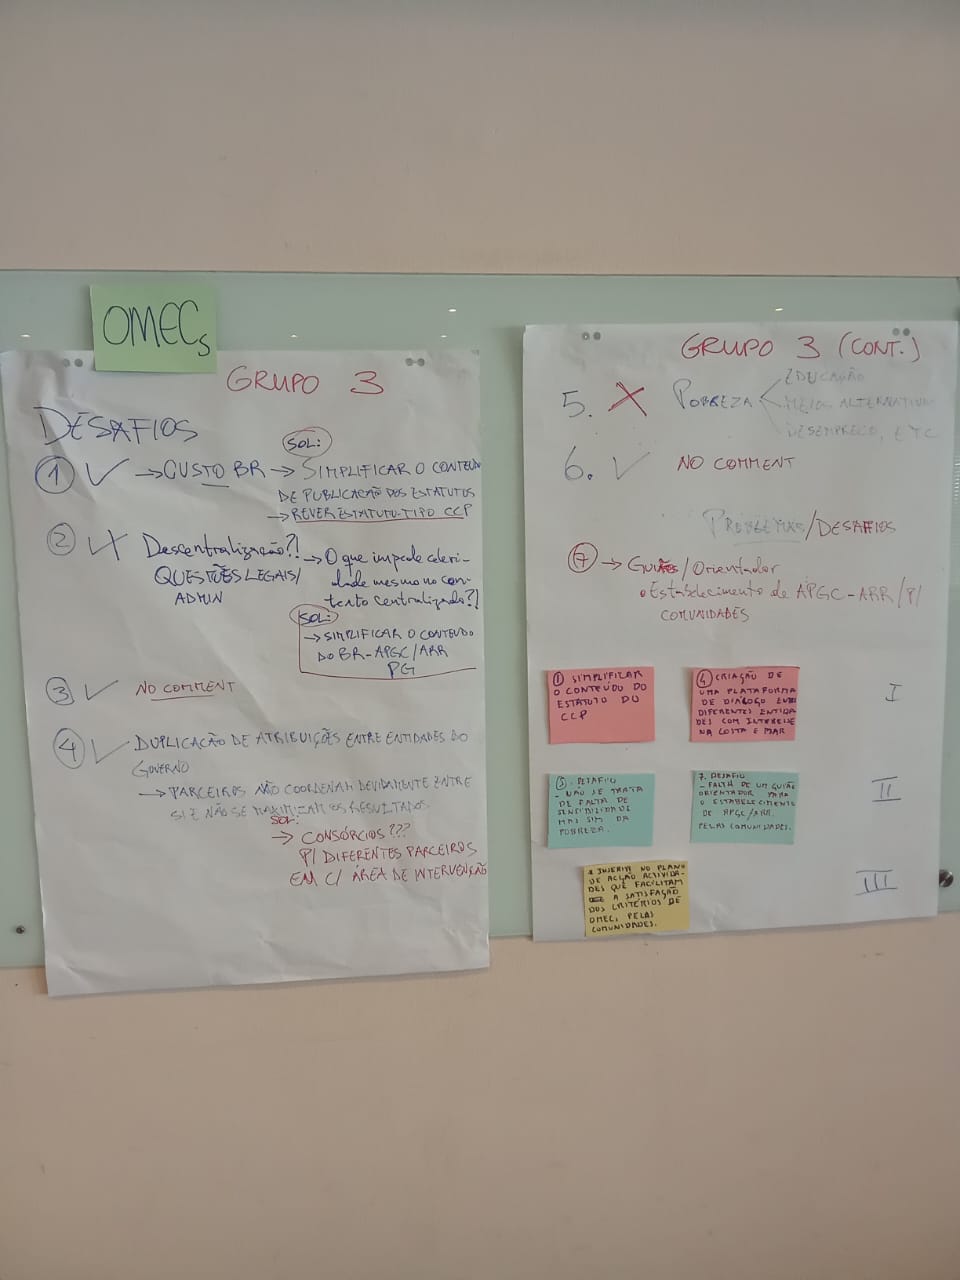 OMECs
GRUPO 3
DESAFIOS
SOL:
① ✓ → CUSTO BR → SIMPLIFICAR O CONTEÚDO
DE PUBLICAÇÃO DOS ESTATUTOS
→ REVER ESTATUTO-TIPO CCP
② Descentralização?! → O que impede celeri-
dade mesmo no con-
texto centralizado?!
QUESTÕES LEGAIS/
ADMIN
SOL:
→ SIMPLIFICAR O CONTEUDO
DO BR-APGC/ARR
PG
③ ✓ NO COMMENT
④ ✓ DUPLICAÇÃO DE ATRIBUIÇÕES ENTRE ENTIDADES DO
GOVERNO
→ PARCEIROS NÃO COORDENAM DEVIDAMENTE ENTRE
SI E NÃO SE OS RESULTADOS.
SOL:
→ CONSÓRCIOS???
P/ DIFERENTES PARCEIROS
EM C/ ÁREA DE INTERVENÇÃO
GRUPO 3 (CONT.)
5. X POBREZA
EDUCAÇÃO
MEIOS ALTERNATIVOS
DESEMPREGO, ETC
6. ✓ NO COMMENT
PROBLEMAS/DESAFIOS
⑦ → GUIÃES/Orientador
o Estabelecimento de APGC-ARR/P/
COMUNIDADES
① SIMPLIFICAR
O CONTEÚDO DO
ESTATUTO DO
CCP
④ CRIAÇÃO DE
UMA PLATAFORMA
DE DIÁLOGO ENTRE
DIFERENTES ENTIDA
DES COM INTERESSE
NA COSTA E MAR
I
⑤. DESAFIO
- NÃO SE TRATA
DE FALTA DE
SENSIBILIDADE
MAS SIM DA
POBREZA.
7. DESAFIO
- FALTA DE UM GUIÃO
ORIENTADOR PARA
O ESTABELECIMENTO
DE APGC/ARR.
PELAS COMUNIDADES.
II
INSERIR NO PLANO
DE ACÇÃO ACTIVIDA-
DES QUE FACILITAM
A SATISFAÇÃO
DOS CRITÉRIOS DE
OMECs PELAS
COMUNIDADES.
III